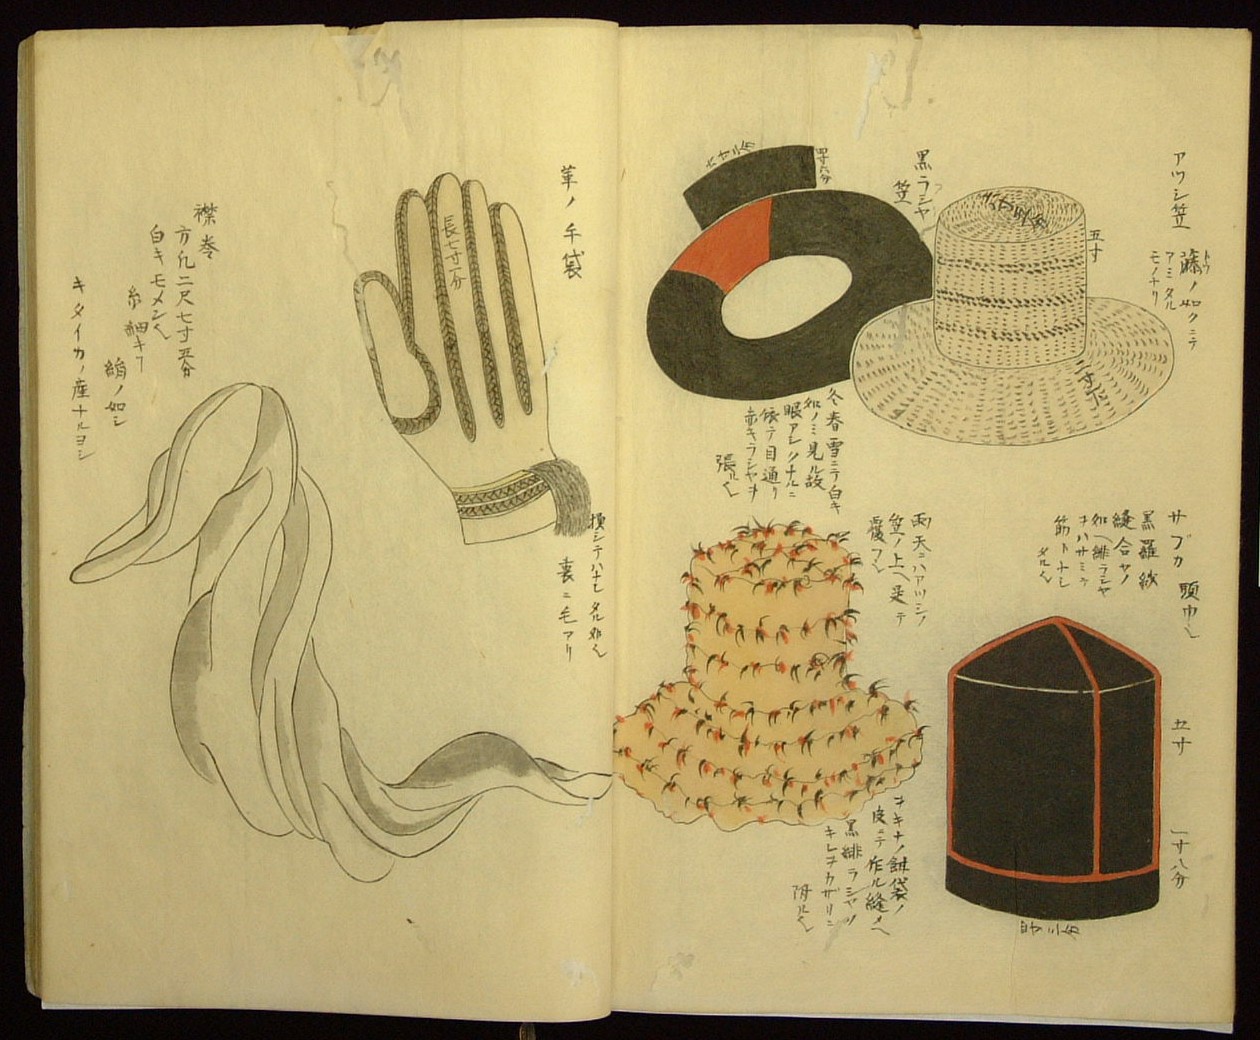 アツシ笠
藤ノ如クニテ
トウ
アミタル
モノナリ
五寸
黒ラシヤ
笠
冬春雪ニテ白キ
如ノミ見ル故
眼アシクナルニ
依テ目通リ
赤キラシヤヲ
張ル也
サブカ 頭巾也
黒羅紗
縫合セノ
如ヘ緋ラシヤ
ヲハサミテ
筋トナシ
タル也
五寸
一寸八分
雨天ニハアツシノ
笠ノ上ヘ是ヲ
覆フ也
ヲキナノ餌袋ノ
皮ニテ作ル縫メヘ
黒緋ラシヤノ
キレヲカザリニ
附ル也
革ノ手袋
長七寸一分
裏ニ毛アリ
襟巻
方凡二尺七寸五分
白キモメン也
糸細キフ
絹ノ如シ
キタイカノ産ナルヨシ